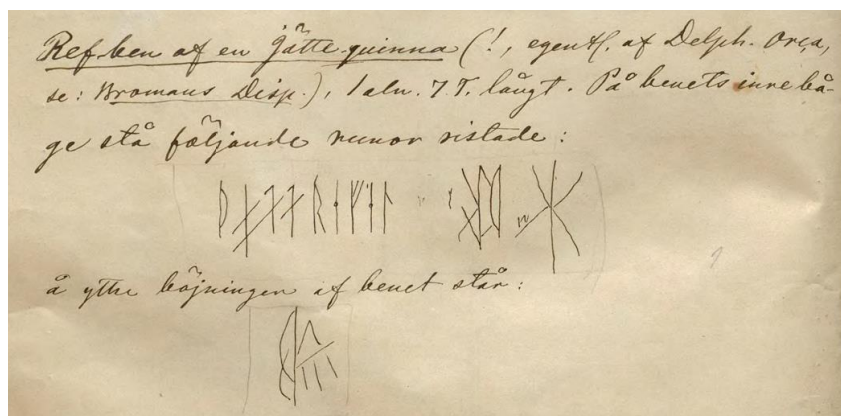 Refben af en Jätteqvinna (!, egentl. af Delph. Orca,
se: Bromans Disp.), 1 aln. 7 T. långt. På benets inre bå-
ge stå följande runor ristade:
å yttre böjningen af benet står: